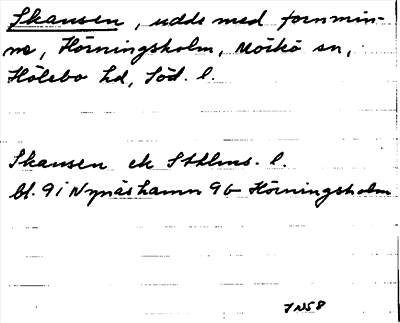 Skansen, udde med fornmin-
ne, Hörningsholm, Mörkö sn,
Hölebo hd, Söd. l.
Skansen ek Sthlms. l.
bl. 9i Nynäshamn 9b Hörningsholm
7NS8